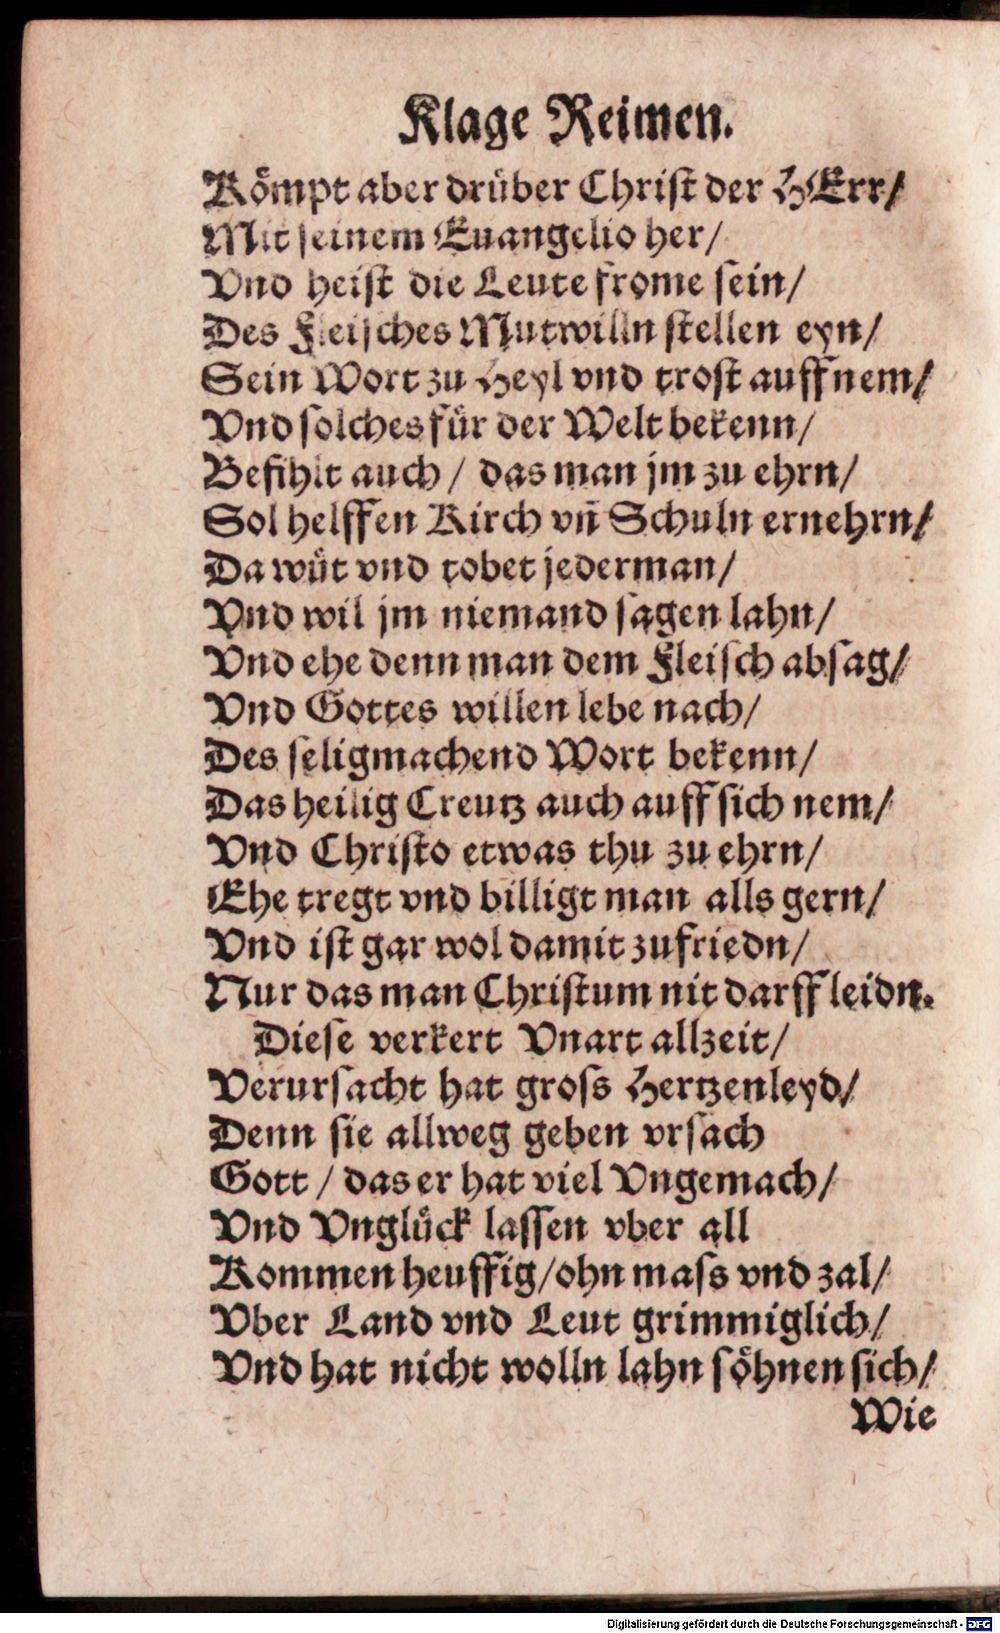 Klage Reimen.
Kömpt aber drüber Christ der HErr/
Mit seinem Euangelio her/
Vnd heist die Leute frome sein/
Des Fleisches Mutwilln stellen eyn/
Sein Wort zu Heyl vnd trost auffnem/
Vnd solches für der Welt bekenn/
Befihlt auch / das man jm zu ehrn/
Sol helffen Kirch vñ Schuln ernehrn/
Da wüt vnd tobet jederman/
Vnd wil jm niemand sagen lahn/
Vnd ehe denn man dem Fleisch absag/
Vnd Gottes willen lebe nach/
Des seligmachend Wort bekenn/
Das heilig Creutz auch auff sich nem/
Vnd Christo etwas thu zu ehrn/
Ehe tregt vnd billigt man alls gern/
Vnd ist gar wol damit zufriedn/
Nur das man Christum nit darff leidn.
Diese verkert Vnart allzeit/
Verursacht hat gross Hertzenleyd/
Denn sie allweg geben vrsach
Gott / das er hat viel Vngemach/
Vnd Vnglück lassen vber all
Kommen heuffig/ohn mass vnd zal/
Vber Land vnd Leut grimmiglich/
Vnd hat nicht wolln lahn söhnen sich/
Wie
Digitalisierung gefördert durch die Deutsche Forschungsgemeinschaft - DFG